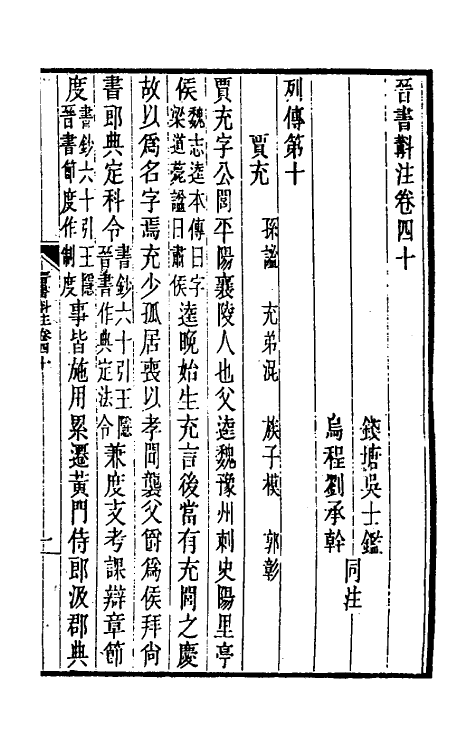 晉書斠注卷四十
錢塘吳士鑑
同注
烏程劉承幹
列傳第十
賈充 孫謐 充弟混 族子模 郭彰
賈充字公閭平陽襄陵人也父逵魏豫州刺史陽里亭
侯魏志逵本傳曰字梁道薨謚曰肅侯逵晚始生充言後當有充閭之慶
故以爲名字焉充少孤居喪以孝聞襲父爵爲侯拜尙
書郎典定科令書鈔六十引王隱晉書作典定法令兼度支考課辯章節
度書鈔六十引王隱晉書節度作制度事皆施用累遷黃門侍郎汲郡典
晉書斠注卷四十
一